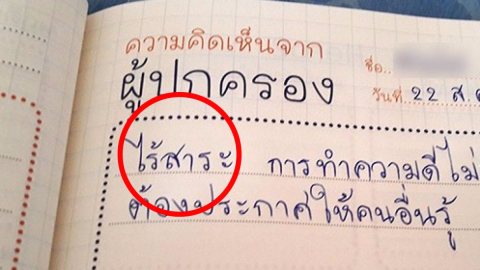 ความคิดเห็นจาก
ผู้ปกครอง
ชื่อ..
วันที่ 22 ส.
ไร้สาระ การทำความดีไม่
ต้องประกาศให้คนอื่นรู้